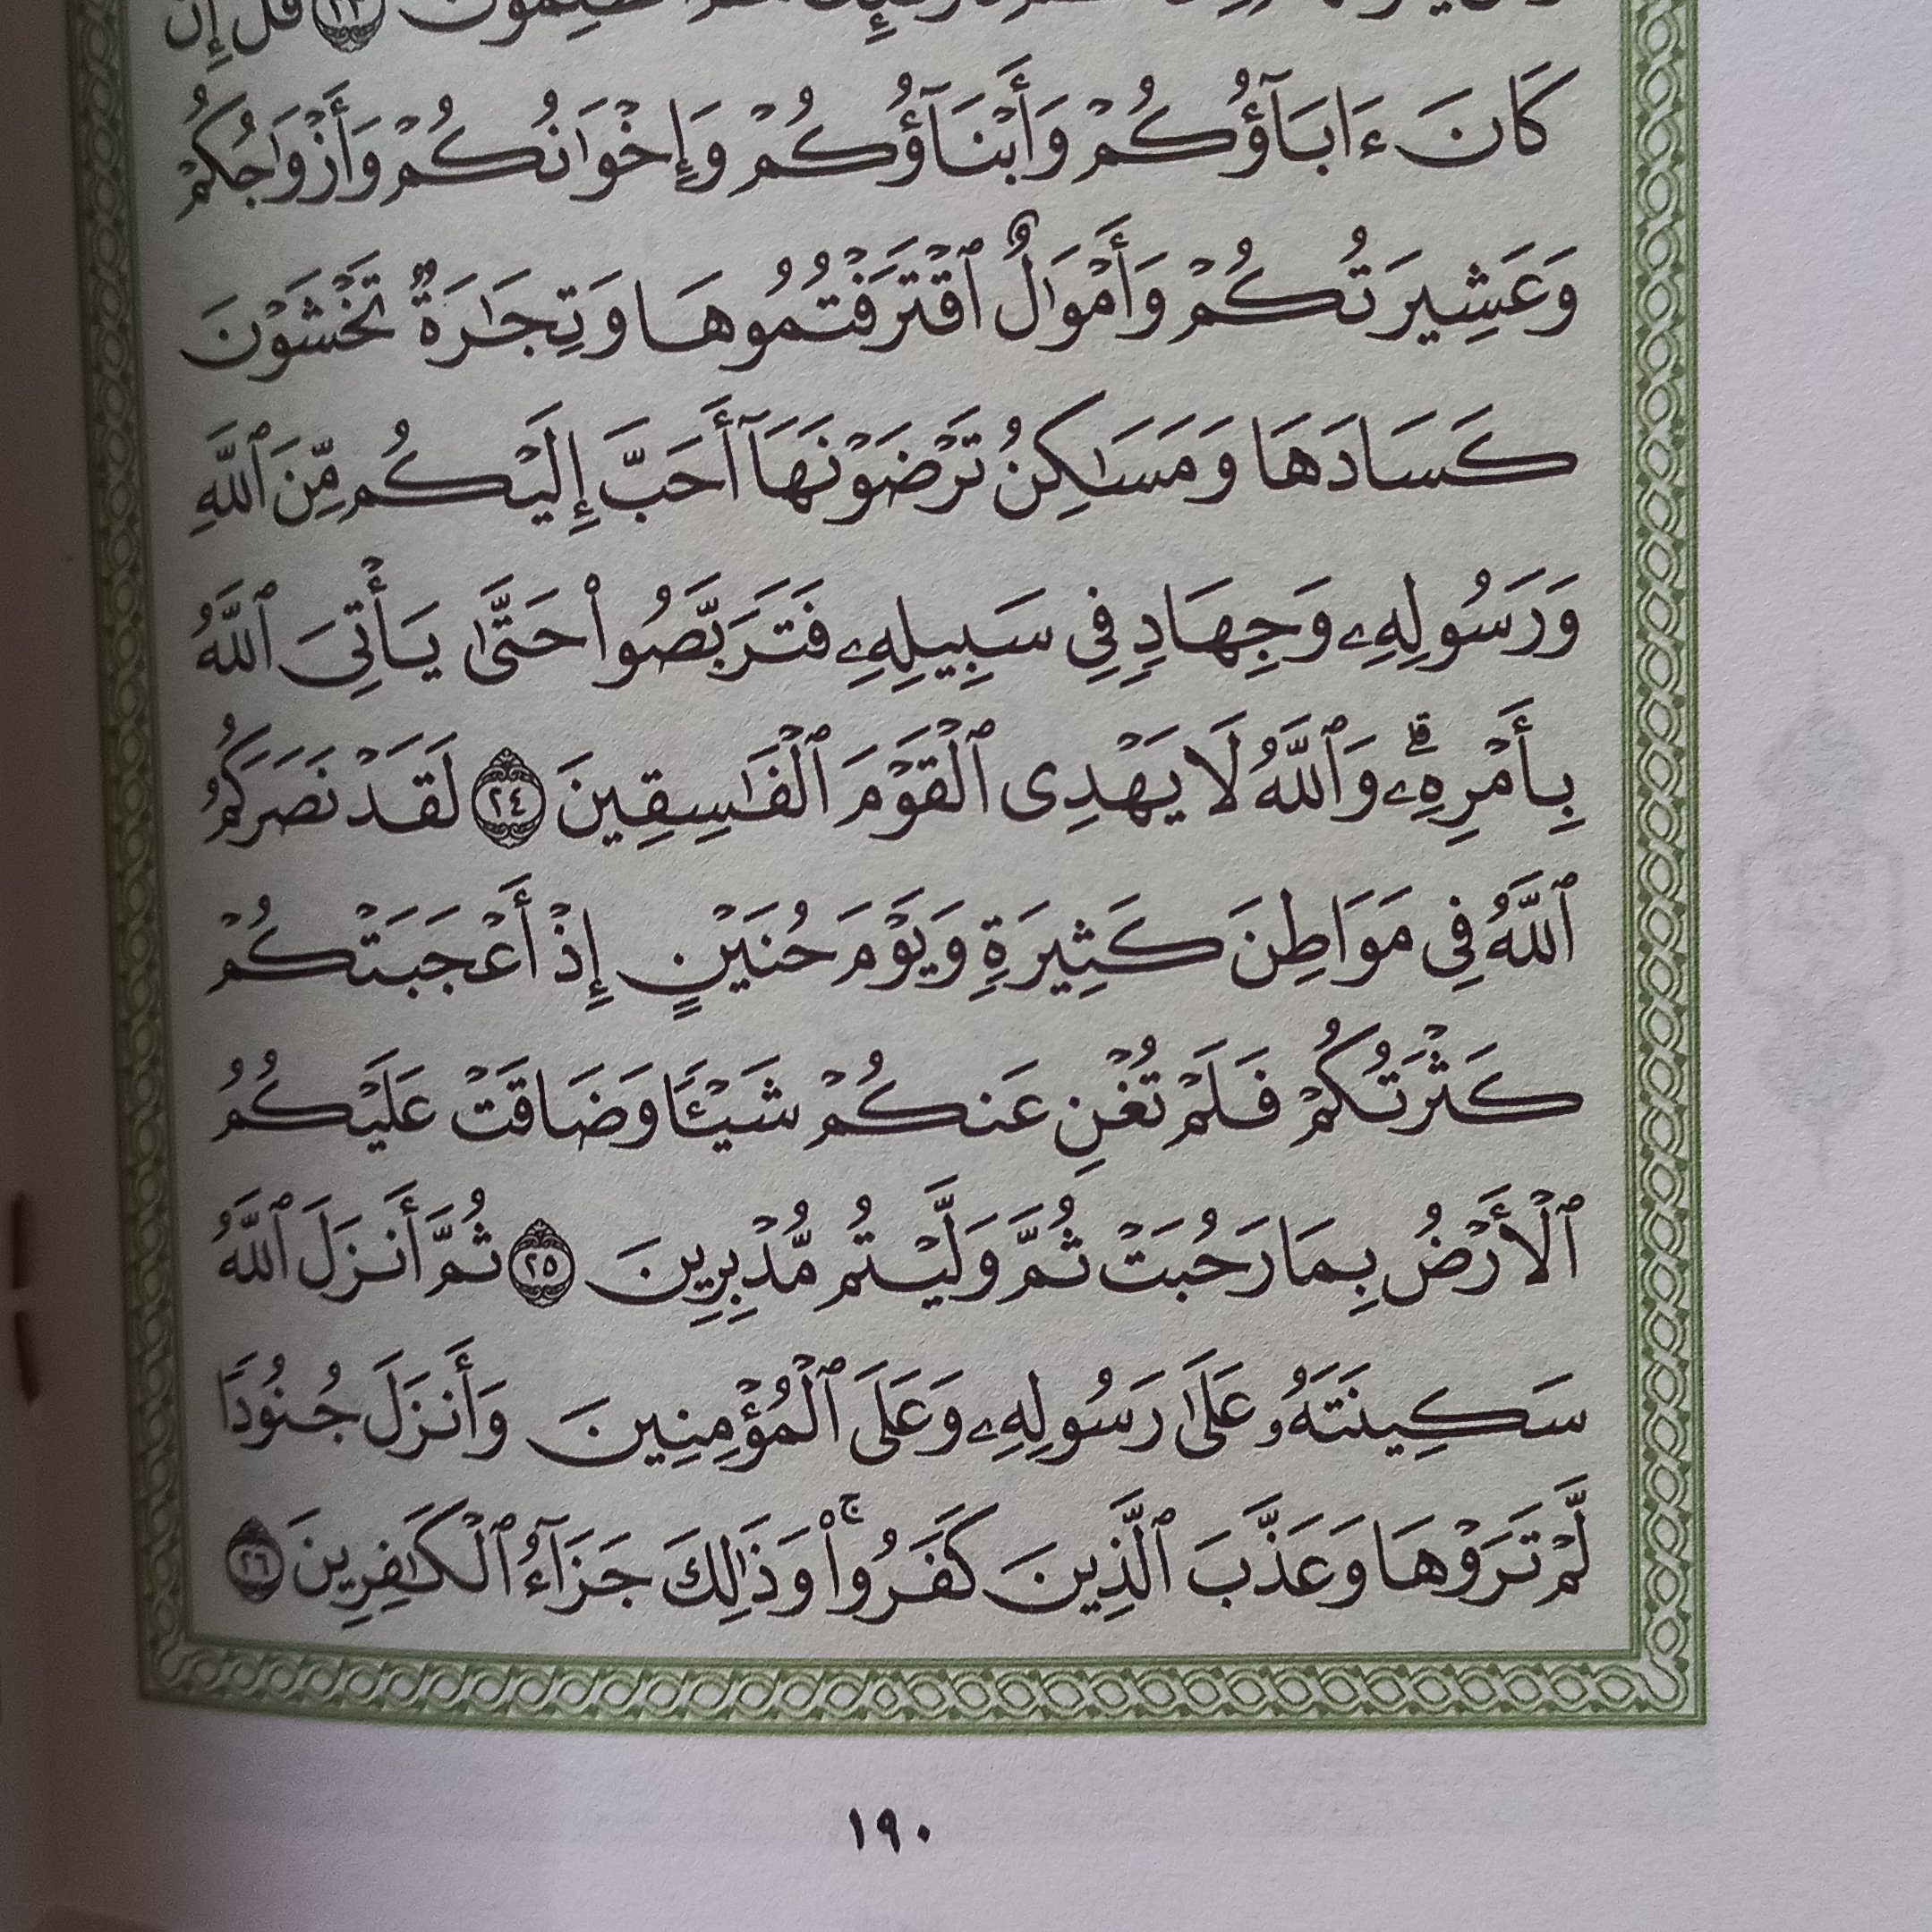 ٱلظَّـٰلِمُونَ ٢٣ قُلْ إِن
كَانَ ءَابَآؤُكُمْ وَأَبْنَآؤُكُمْ وَإِخْوَٰنُكُمْ وَأَزْوَٰجُكُمْ
وَعَشِيرَتُكُمْ وَأَمْوَٰلٌ ٱقْتَرَفْتُمُوهَا وَتِجَـٰرَةٌ تَخْشَوْنَ
كَسَادَهَا وَمَسَـٰكِنُ تَرْضَوْنَهَآ أَحَبَّ إِلَيْكُم مِّنَ ٱللَّهِ
وَرَسُولِهِۦ وَجِهَادٍ فِى سَبِيلِهِۦ فَتَرَبَّصُوا۟ حَتَّىٰ يَأْتِىَ ٱللَّهُ
بِأَمْرِهِۦ ۗ وَٱللَّهُ لَا يَهْدِى ٱلْقَوْمَ ٱلْفَـٰسِقِينَ ٢٤ لَقَدْ نَصَرَكُمُ
ٱللَّهُ فِى مَوَاطِنَ كَثِيرَةٍ وَيَوْمَ حُنَيْنٍ إِذْ أَعْجَبَتْكُمْ
كَثْرَتُكُمْ فَلَمْ تُغْنِ عَنكُمْ شَيْـًٔا وَضَاقَتْ عَلَيْكُمُ
ٱلْأَرْضُ بِمَا رَحُبَتْ ثُمَّ وَلَّيْتُم مُّدْبِرِينَ ٢٥ ثُمَّ أَنزَلَ ٱللَّهُ
سَكِينَتَهُۥ عَلَىٰ رَسُولِهِۦ وَعَلَى ٱلْمُؤْمِنِينَ وَأَنزَلَ جُنُودًا
لَّمْ تَرَوْهَا وَعَذَّبَ ٱلَّذِينَ كَفَرُوا۟ ۚ وَذَٰلِكَ جَزَآءُ ٱلْكَـٰفِرِينَ ٢٦
١٩٠